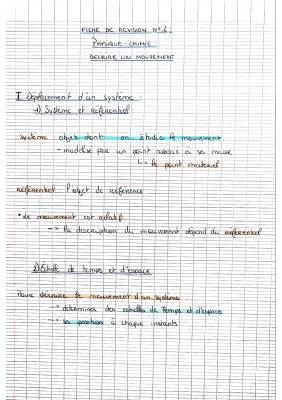 FICHE DE RÉVISION N°2 :
PHYSIQUE-CHIMIE
DÉCRIRE UN MOUVEMENT
I Déplacement d'un système :
1) Système et référentiel
système : objet dont on étudie le mouvement
- modélisé par un point associé à sa masse
L> le point matériel
référentiel : l'objet de référence
• Le mouvement est relatif
--> la description du mouvement dépend du référentiel
2) Échelle de temps et d'espace
Pour décrire le mouvement d'un système
--> détermines des échelles de temps et d'espace
--> sa position à chaque instants